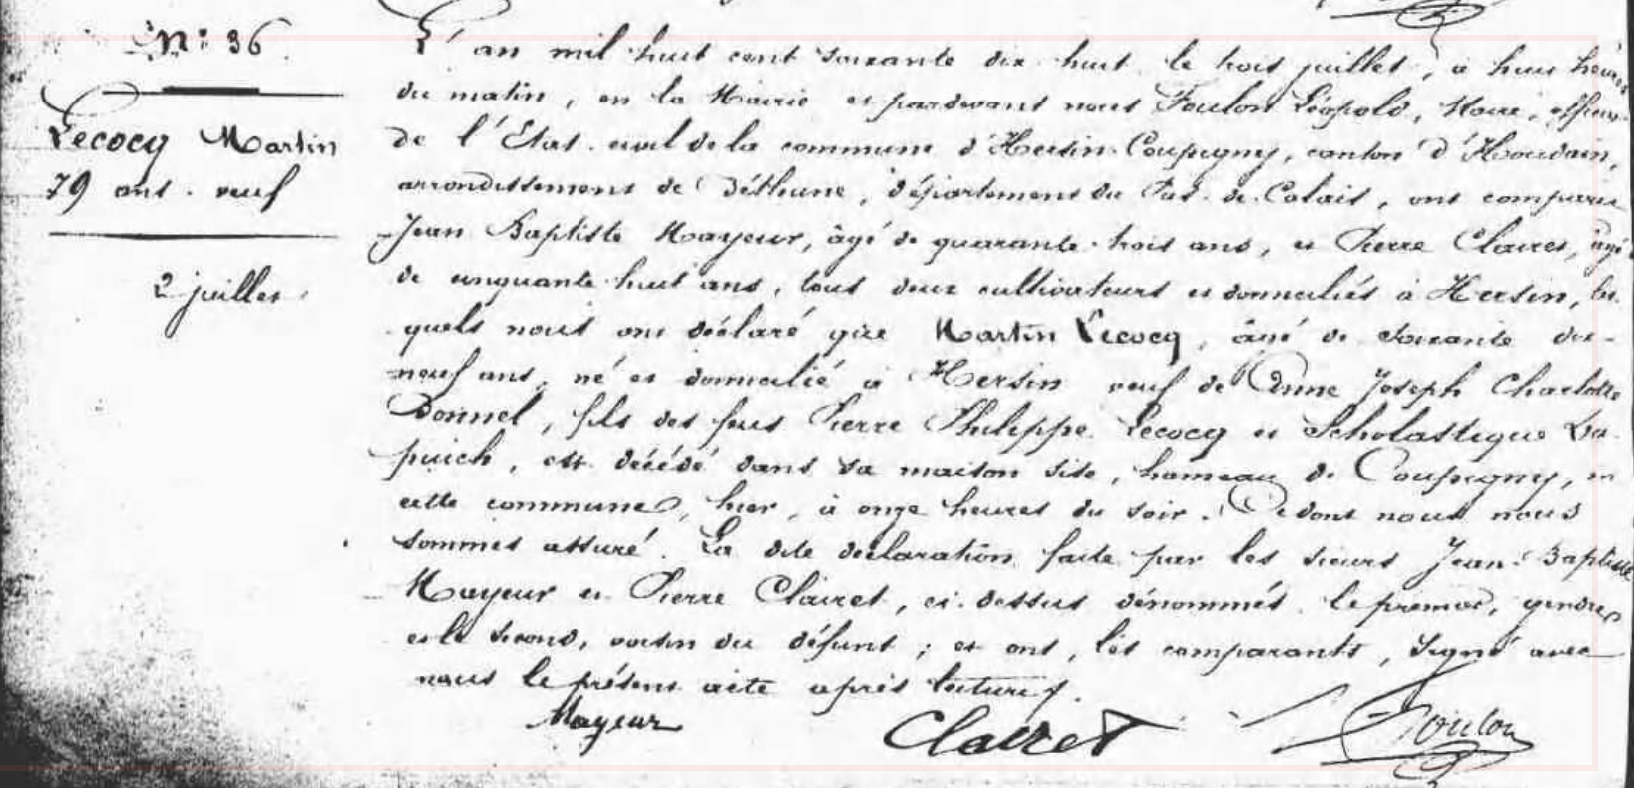 N° 36
Lecocq Martin
79 ans. veuf
2 juillet
L'an mil huit cent soixante dix huit le trois juillet, à huit heures
du matin, en la Mairie et pardevant nous Foulon Léopold, Maire, officier
de l'Etat civil de la commune d'Hersin-Coupigny, canton d'Houdain,
arrondissement de Béthune, département du Pas-de-Calais, ont comparu
Jean Baptiste Mayeur, âgé de quarante-trois ans, et Pierre Clairet, âgé
de cinquante huit ans, tous deux cultivateurs et domiciliés à Hersin, les
quels nous ont déclaré que Martin Lecocq, âgé de soixante dix-
neuf ans, né et domicilié à Hersin veuf de Anne Joseph Charlotte
Bonnel, fils des feus Pierre Philippe Lecocq et Scholastique Da
puich, est décédé dans sa maison sise, hameau de Coupigny, en
cette commune, hier, à onze heures du soir. Ce dont nous nous
sommes assuré. La dite déclaration faite par les sieurs Jean-Baptiste
Mayeur et Pierre Clairet, ci-dessus dénommés, le premier, gendre
et le second, voisin du défunt ; et ont, les comparants, signé avec
nous le présent acte après lecture.
Mayeur
Clairet
Foulon